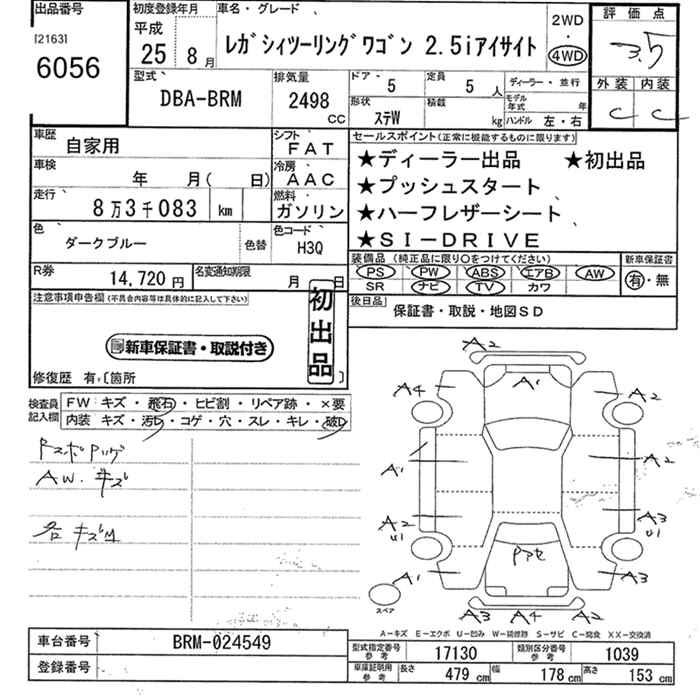 出品番号
[2163]
6056
初度登録年月
平成
25年 8月
車名・グレード
レガシィツーリングワゴン 2.5iアイサイト
2WD
・
4WD
評価点
3.5
外装 内装
C C
型式
DBA-BRM
排気量
2498
CC
ドア 5
定員 5人
ディーラー・並行
形状 ステW
積載 kg
モデル年式 年
ハンドル 左・右
車歴 自家用
シフト FAT
車検 年 月( 日)
冷房 AAC
走行 8万3千083 km
燃料 ガソリン
色 ダークブルー 色替
色コード H3Q
R券 14,720円
名変通知期限 月 日
セールスポイント(正常に機能するものに限ります)
★ディーラー出品 ★初出品
★プッシュスタート
★ハーフレザーシート
★SI-DRIVE
装備品(純正品に限り○をつけてください)
PS PW ABS エアB AW
SR ナビ TV カワ
新車保証書
有・無
後日品
保証書・取説・地図SD
注意事項申告欄(不具合内容等は具体的に記入して下さい)
初出品
新車保証書・取説付き
修復歴 有:〔箇所 〕
検査員記入欄
FW:キズ・飛石・ヒビ割・リペア跡・×要
内装:キズ・汚レ・コゲ・穴・スレ・キレ・破レ
AW.キズ
A2
A4 A1 A2
A1
A2 A3
U1 U1
A1 A3
スペア
A3 A4 A2
A-キズ E-エクボ U-凹み W-補修跡 S-サビ C-腐食 XX-交換済
車台番号 BRM-024549
登録番号
型式指定番号参考 17130
類別区分番号参考 1039
車庫証明用参考 長さ 479cm 幅 178cm 高さ 153cm